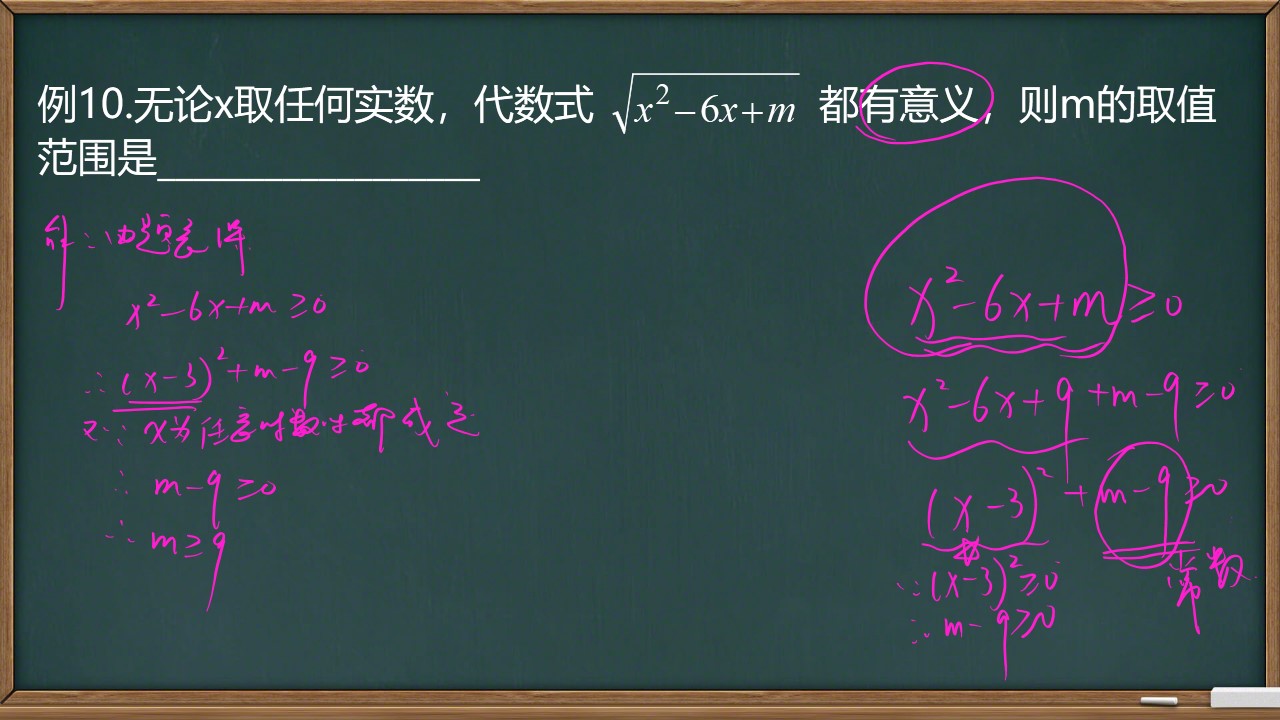 例10.无论x取任何实数，代数式 √(x²−6x+m) 都有意义，则m的取值
范围是________________
解：由题意得
x²−6x+m≥0
∴(x−3)²+m−9≥0
又∵x为任意时数时都成立
∴ m−9≥0
∴ m≥9
x²−6x+m≥0
x²−6x+9+m−9≥0
(x−3)²+m−9≥0
常数
∵(x−3)²≥0
∴m−9≥0